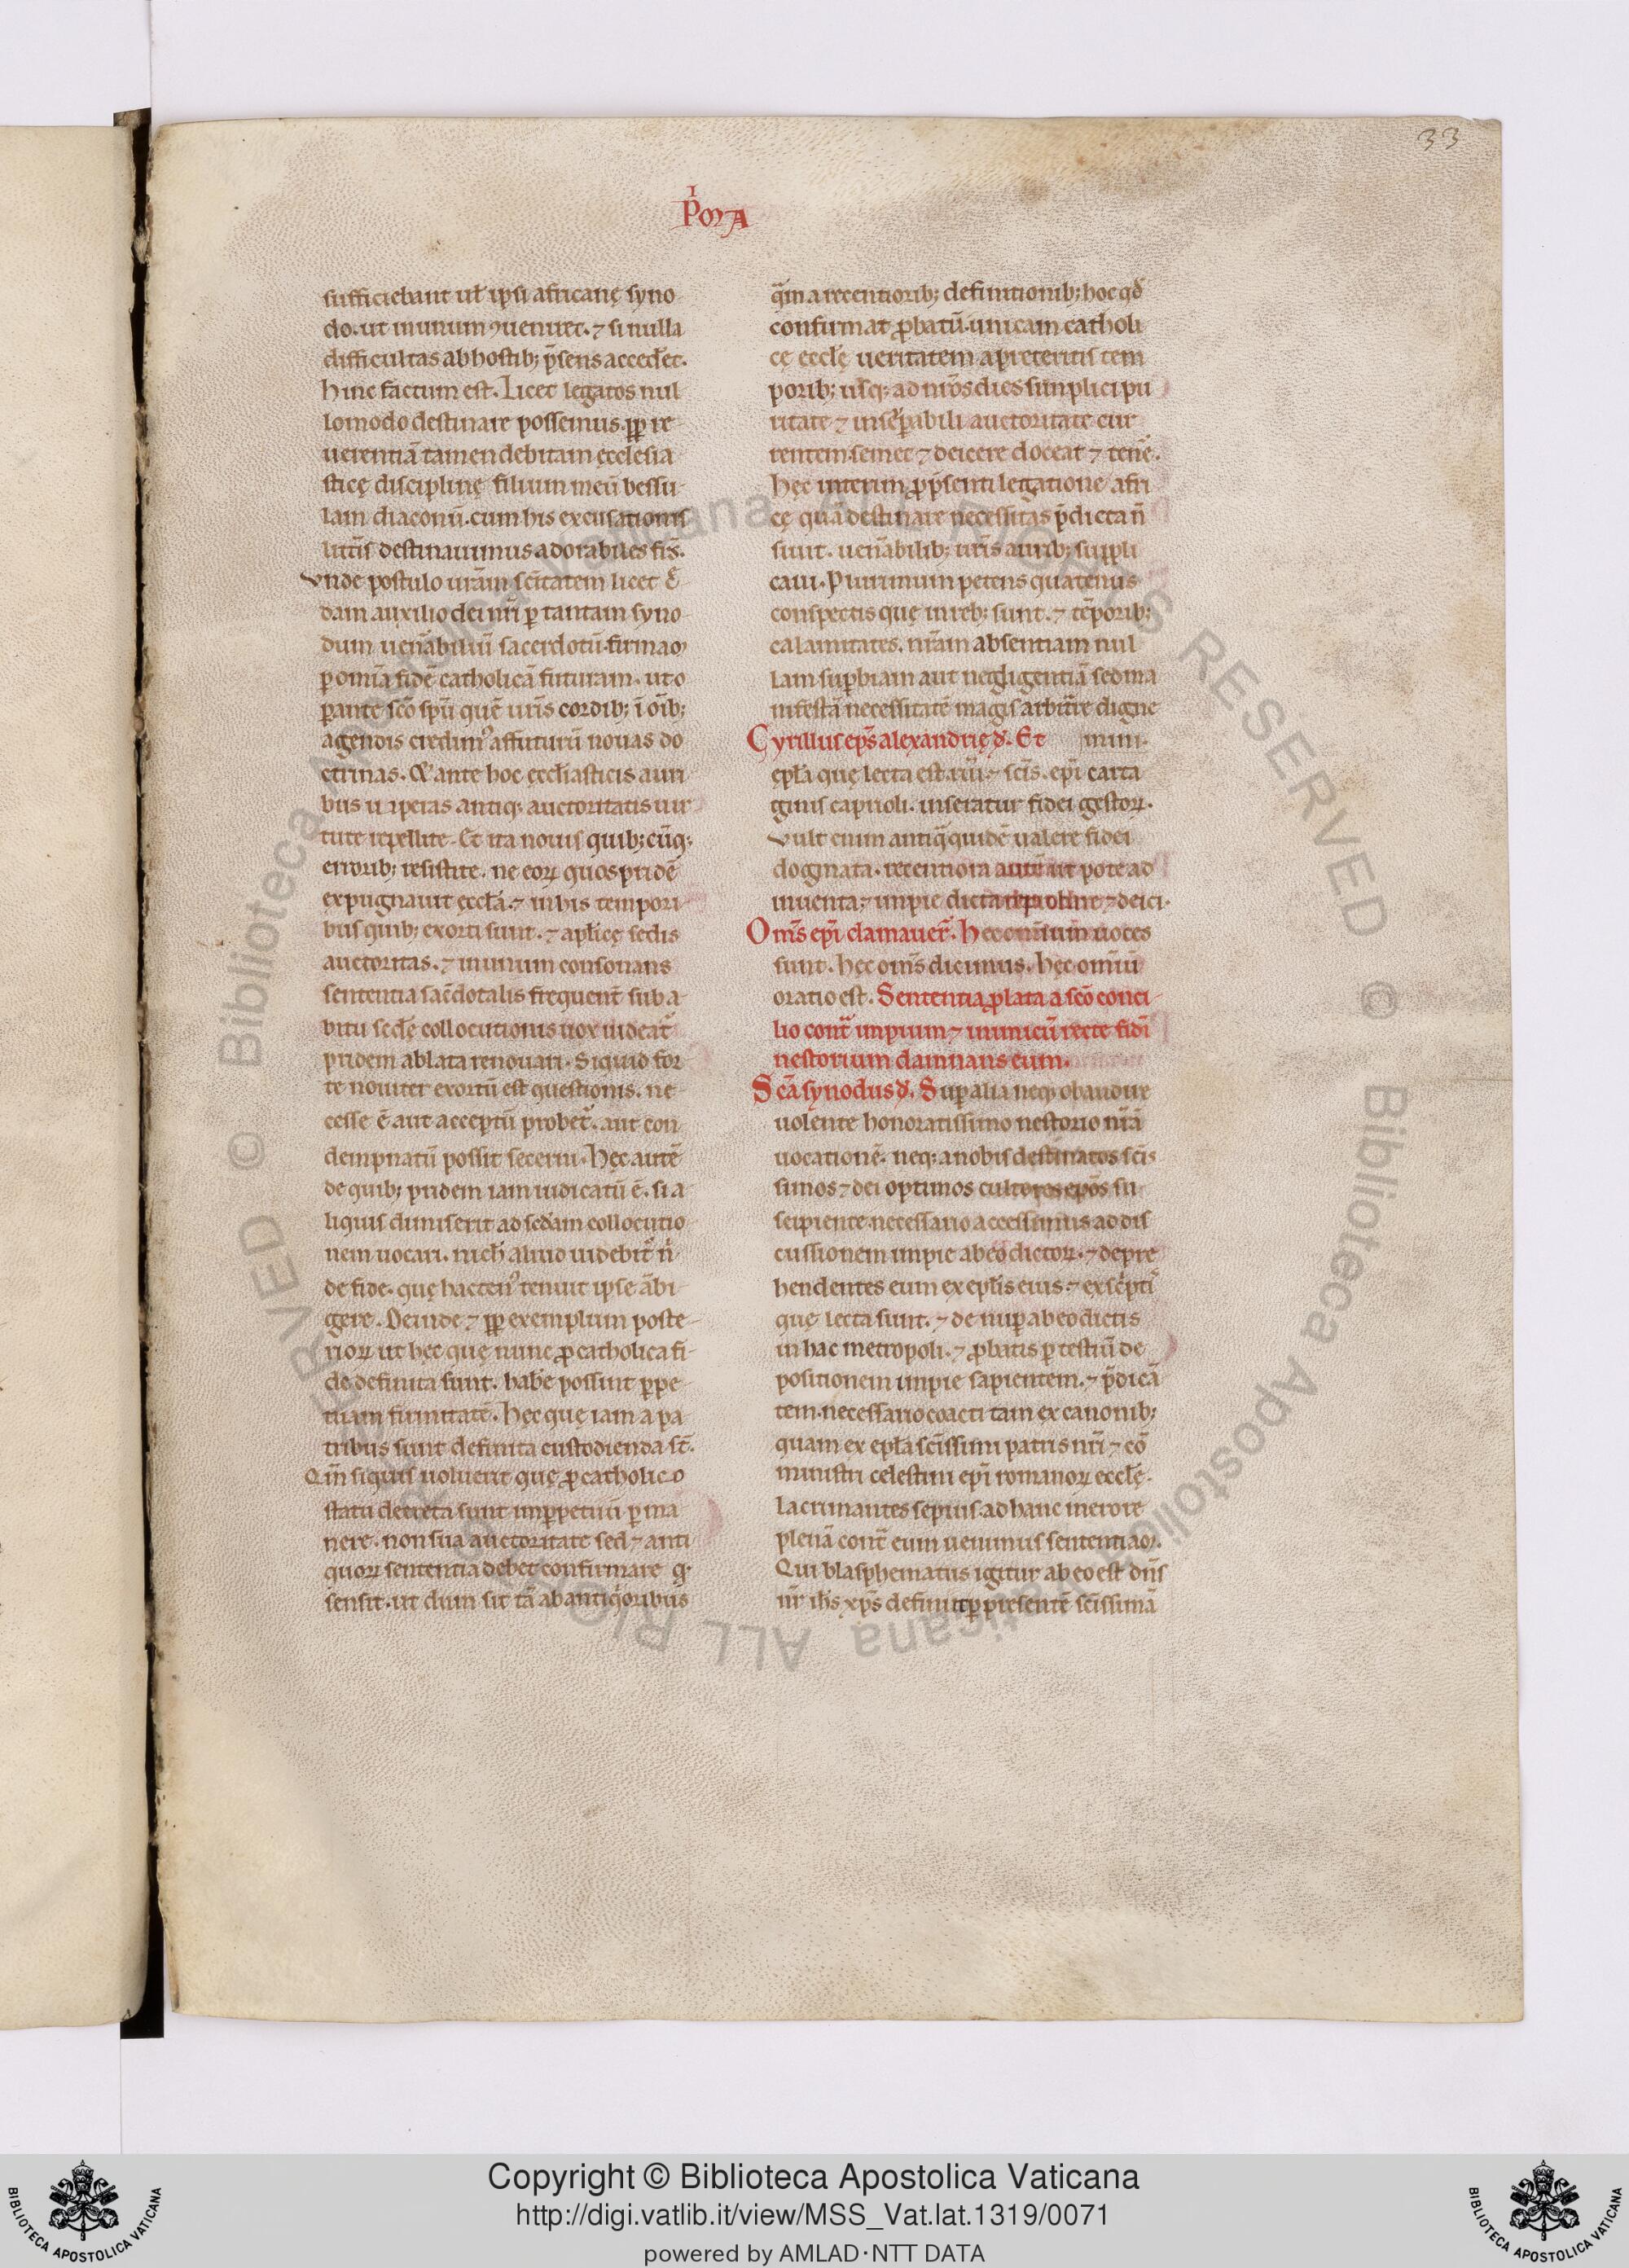 33
PⁱmA
sufficiebant ul̄ ipsi africanę syno
do. ut in unum ꝯueniret. ⁊ si nulla
difficultas ab hostib; p̄sens accederet.
hinc factum est. Licet legatos nul
lo modo destinare possemus. ꝓpꝑ re
uerentiā tamen debitam ęcclesia
sticę disciplinę filium meū bessu
lam diaconū. cum his excusationis
litt̄is destinauimus adorabiles fr̄s.
Vnde postulo ur̄am sc̄itatem licet
dam auxilio dei nr̄i ꝑ tantam syno
dum uen̄abiliū sacerdotū. firmaꝫ
ꝑ om̄ia fidē catholicā futuram. ut o
ꝑante sc̄o sp̄u quē ur̄is cordib; ī oīb;
agendis credimꝰ affuturū nouas do
ctrinas. ⁊ ante hoc ęccl̄iasticis auri
bus antiq; auctoritatis uir
tute repellite. Et ita nouis quib; cūq;
errorib; resistite. ne eoꝝ quos pridē
expugnauit ęccl̄a. ⁊ in his tempori
bus quib; exorti sunt. ⁊ apl̄icę sedis
auctoritas. ⁊ in unum consonans
sententia sac̄dotalis frequent̄ sub a
bitu sc̄dę collocutionis uox uideat᷑
pridem ablata renouari. Si quid for
te nouiter exortū est questionis. ne
cesse ē aut acceptū probet᷑. aut con
dempnatū possit secerni. Hęc autē
de quib; pridem iam iudicatū ē. si a
liquis dimiserit ad sc̄dam collocutio
nem uocari. nich̄ aliud uidebit᷑ nⁱ
de fide. quę hactenꝰ tenuit ipse ābi
gere. Deinde ⁊ ꝓpꝑ exemplum poste
rioꝝ ut hęc quę nunc ꝓ catholica fi
de definita sunt. habere possint ꝑpe
tuam firmitatē. Hęc quę iam a pa
tribus sunt definita custodienda st̄.
Qm̄ si quis uoluerit quę ꝓ catholico
statu decreta sunt in ꝑpetuū ꝑma
nere. non sua auctoritate sed ⁊ anti
quoꝝ sententia debet confirmare q;
sensit. ut dum sit tā ab antiqⁱoribus
q̄m a recentiorib; definitionib; hoc qd̄
confirmat ꝓbatū. unicam catholi
cę eccl̄ę ueritatem a preteritis tem
porib; usq; ad nr̄os dies simplici pu
ritate ⁊ insep̄abili auctoritate cur
rentem semet ⁊ deicere doceat ⁊ tene̅.
Hęc interim ꝓ p̄senti legatione afri
cę quā destinare necessitas p̄dicta n̄
siuit. uen̄abilib; ur̄is aurib; suppli
caui. Plurimum petens quatenus
conspectis quę in reb; sunt. ⁊ tēporib;
calamitates. nr̄am absentiam nul
lam suꝑbiam aut negligentiā sed ma
nifestā necessitatē magis arbit̄re digne
Cyrillus ep̄s alexandrię d̄. Et mini.
ępl̄a quę lecta est r̄ui ⁊ sc̄is. ep̄i carta
ginis caprioli. inseratur fidei gestoꝝ.
Vult enim antiq̄ quidē ualere fidei
dogmata. recentiora autē ut pote ad
inuenta; ⁊ impie dicta reprobare ⁊ deici.
Oms̄ ep̄i clamauer̄. Hęc om̄ium uoces
sunt. hęc oms̄ dicimus. hęc om̄iū
oratio est. Sententia ꝓlata a sc̄o conci
lio cont̄ impium ⁊ inimicū recte fidi̅
nestorium damnans eum.
Sc̄a synodus d̄. Suꝑ alia neq; obaudire
uolente honoratissimo nestorio nr̄ā
uocationē. neq; a nobis destinatos sc̄i
simos ⁊ dei optimos cultores ep̄os su
scipiente. necessario accessimus ad dis
cussionem impie ab eo dictoꝝ. ⁊ depre
hendentes eum ex epl̄is eius. ⁊ exscⁱptꝭ
quę lecta sunt. ⁊ de nuꝑ ab eo dictis
in hac metropoli. ⁊ ꝓbatis ꝑ testiū de
positionem impie sapientem. ⁊ p̄dicā
tem. necessario coacti tam ex canonib;
quam ex epl̄a sc̄issimi patris nr̄i ⁊ cō
ministri celestini ep̄i romanoꝝ eccl̄ę.
Lacrimantes sepius. ad hanc merore
plenā cont̄ eum uenimus sententiaꝫ.
Qui blasphematus igitur ab eo est dn̄s
nr̄ ih̄s xp̄s definiuit ꝑ presentē sc̄issimā
Copyright © Biblioteca Apostolica Vaticana
http://digi.vatlib.it/view/MSS_Vat.lat.1319/0071
powered by AMLAD·NTT DATA